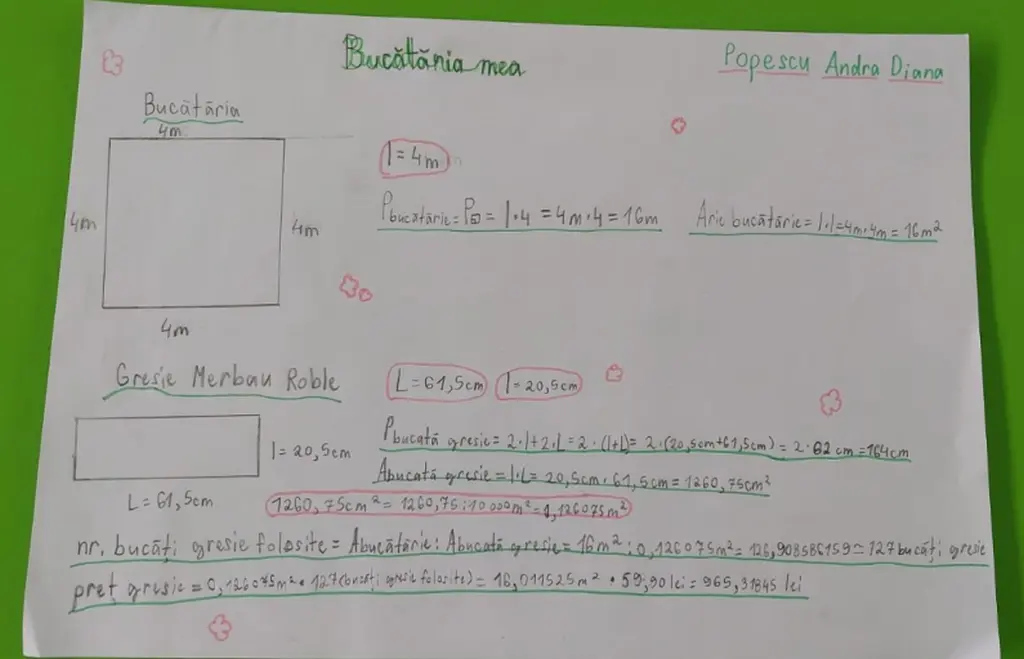 Bucătăria mea
Popescu Andra Diana
Bucătăria
4m
4m
4m
4m
l = 4m
Pbucătărie = P▱ = l·4 = 4m·4 = 16m
Arie bucătărie = l·l = 4m·4m = 16m²
Gresie Merbau Roble
L = 61,5cm
l = 20,5cm
l = 20,5cm
L = 61,5cm
Pbucată gresie = 2·l+2·L = 2·(l+L) = 2·(20,5cm+61,5cm) = 2·82 cm = 164cm
Abucată gresie = l·L = 20,5cm·61,5cm = 1260,75cm²
1260,75cm² = 1260,75:10000m² = 0,126075m²
nr. bucăți gresie folosite = Abucătărie : Abucată gresie = 16m² : 0,126075m² = 126,908586159 ≈ 127 bucăți gresie
preț gresie = 0,126075m² · 127(bucăți gresie folosite) = 16,011525m² · 59,90 lei = 965,31845 lei